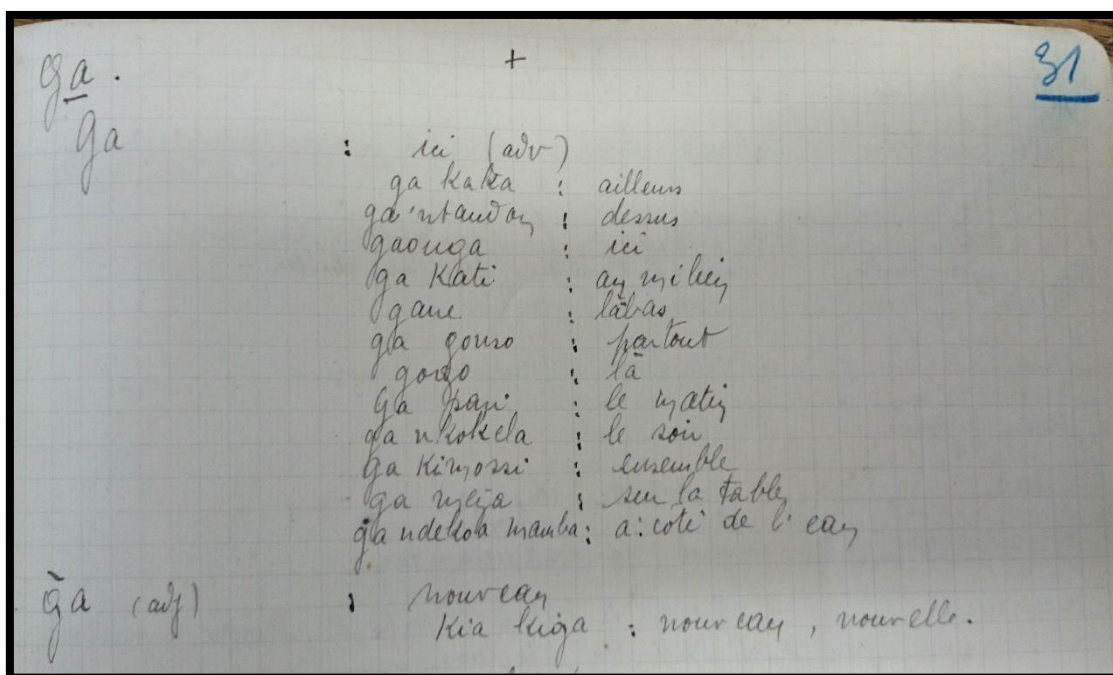 ga. + 31
ga : ici (adv)
ga kaka : ailleurs
ga 'ntandou : dessus
gaouga : ici
ga Kati : au milieu
gane : làbas
ga gouso : partout
gogo : là
ga pari : le matin
ga nkokela : le soir
ga Kimossi : ensemble
ga meja : sur la table
ga ndekola mamba : a coté de l'eau
g̃a (adj) : nouveau
Kia kiga : nouveau, nouvelle.